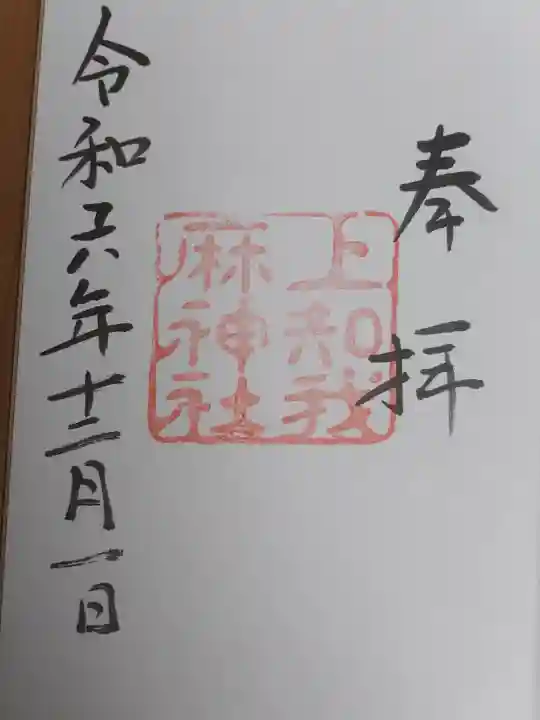 奉拝
上知我
麻神社
令和六年十二月一日